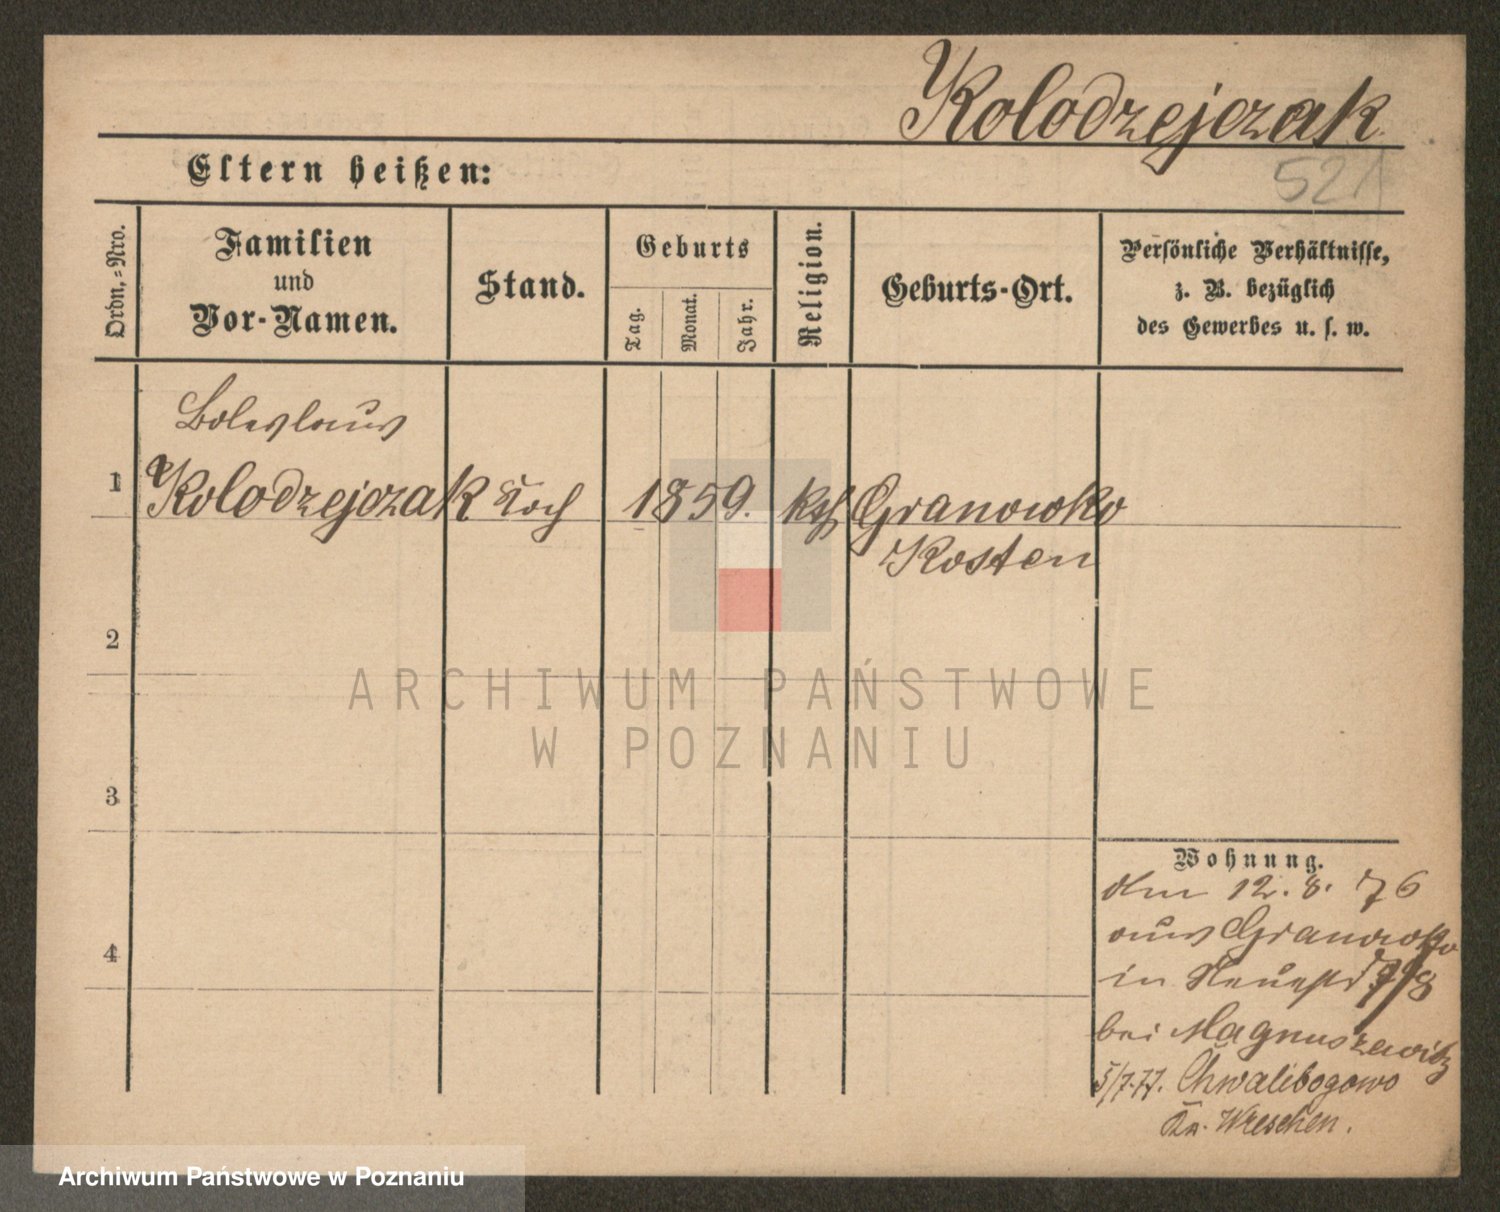 Kolodzejczak
Eltern heißen:
521
Ordn.=Nro.
Familien
und
Vor-Namen.
Stand.
Geburts
Tag.
Monat.
Jahr.
Religion.
Geburts-Ort.
Persönliche Verhältnisse,
z. B. bezüglich
des Gewerbes u. s. w.
Boleslaus
1 Kolodzejczak Koch 1859. kth Granowko
Kosten
2
3
4
Wohnung.
den 12. 8. 76
aus Granowko
in Neuestr 7/8
bei Magnuszewitz
5/7.77. Chwalibogowo
Kr. Wreschen.
ARCHIWUM PAŃSTWOWE
W POZNANIU
Archiwum Państwowe w Poznaniu